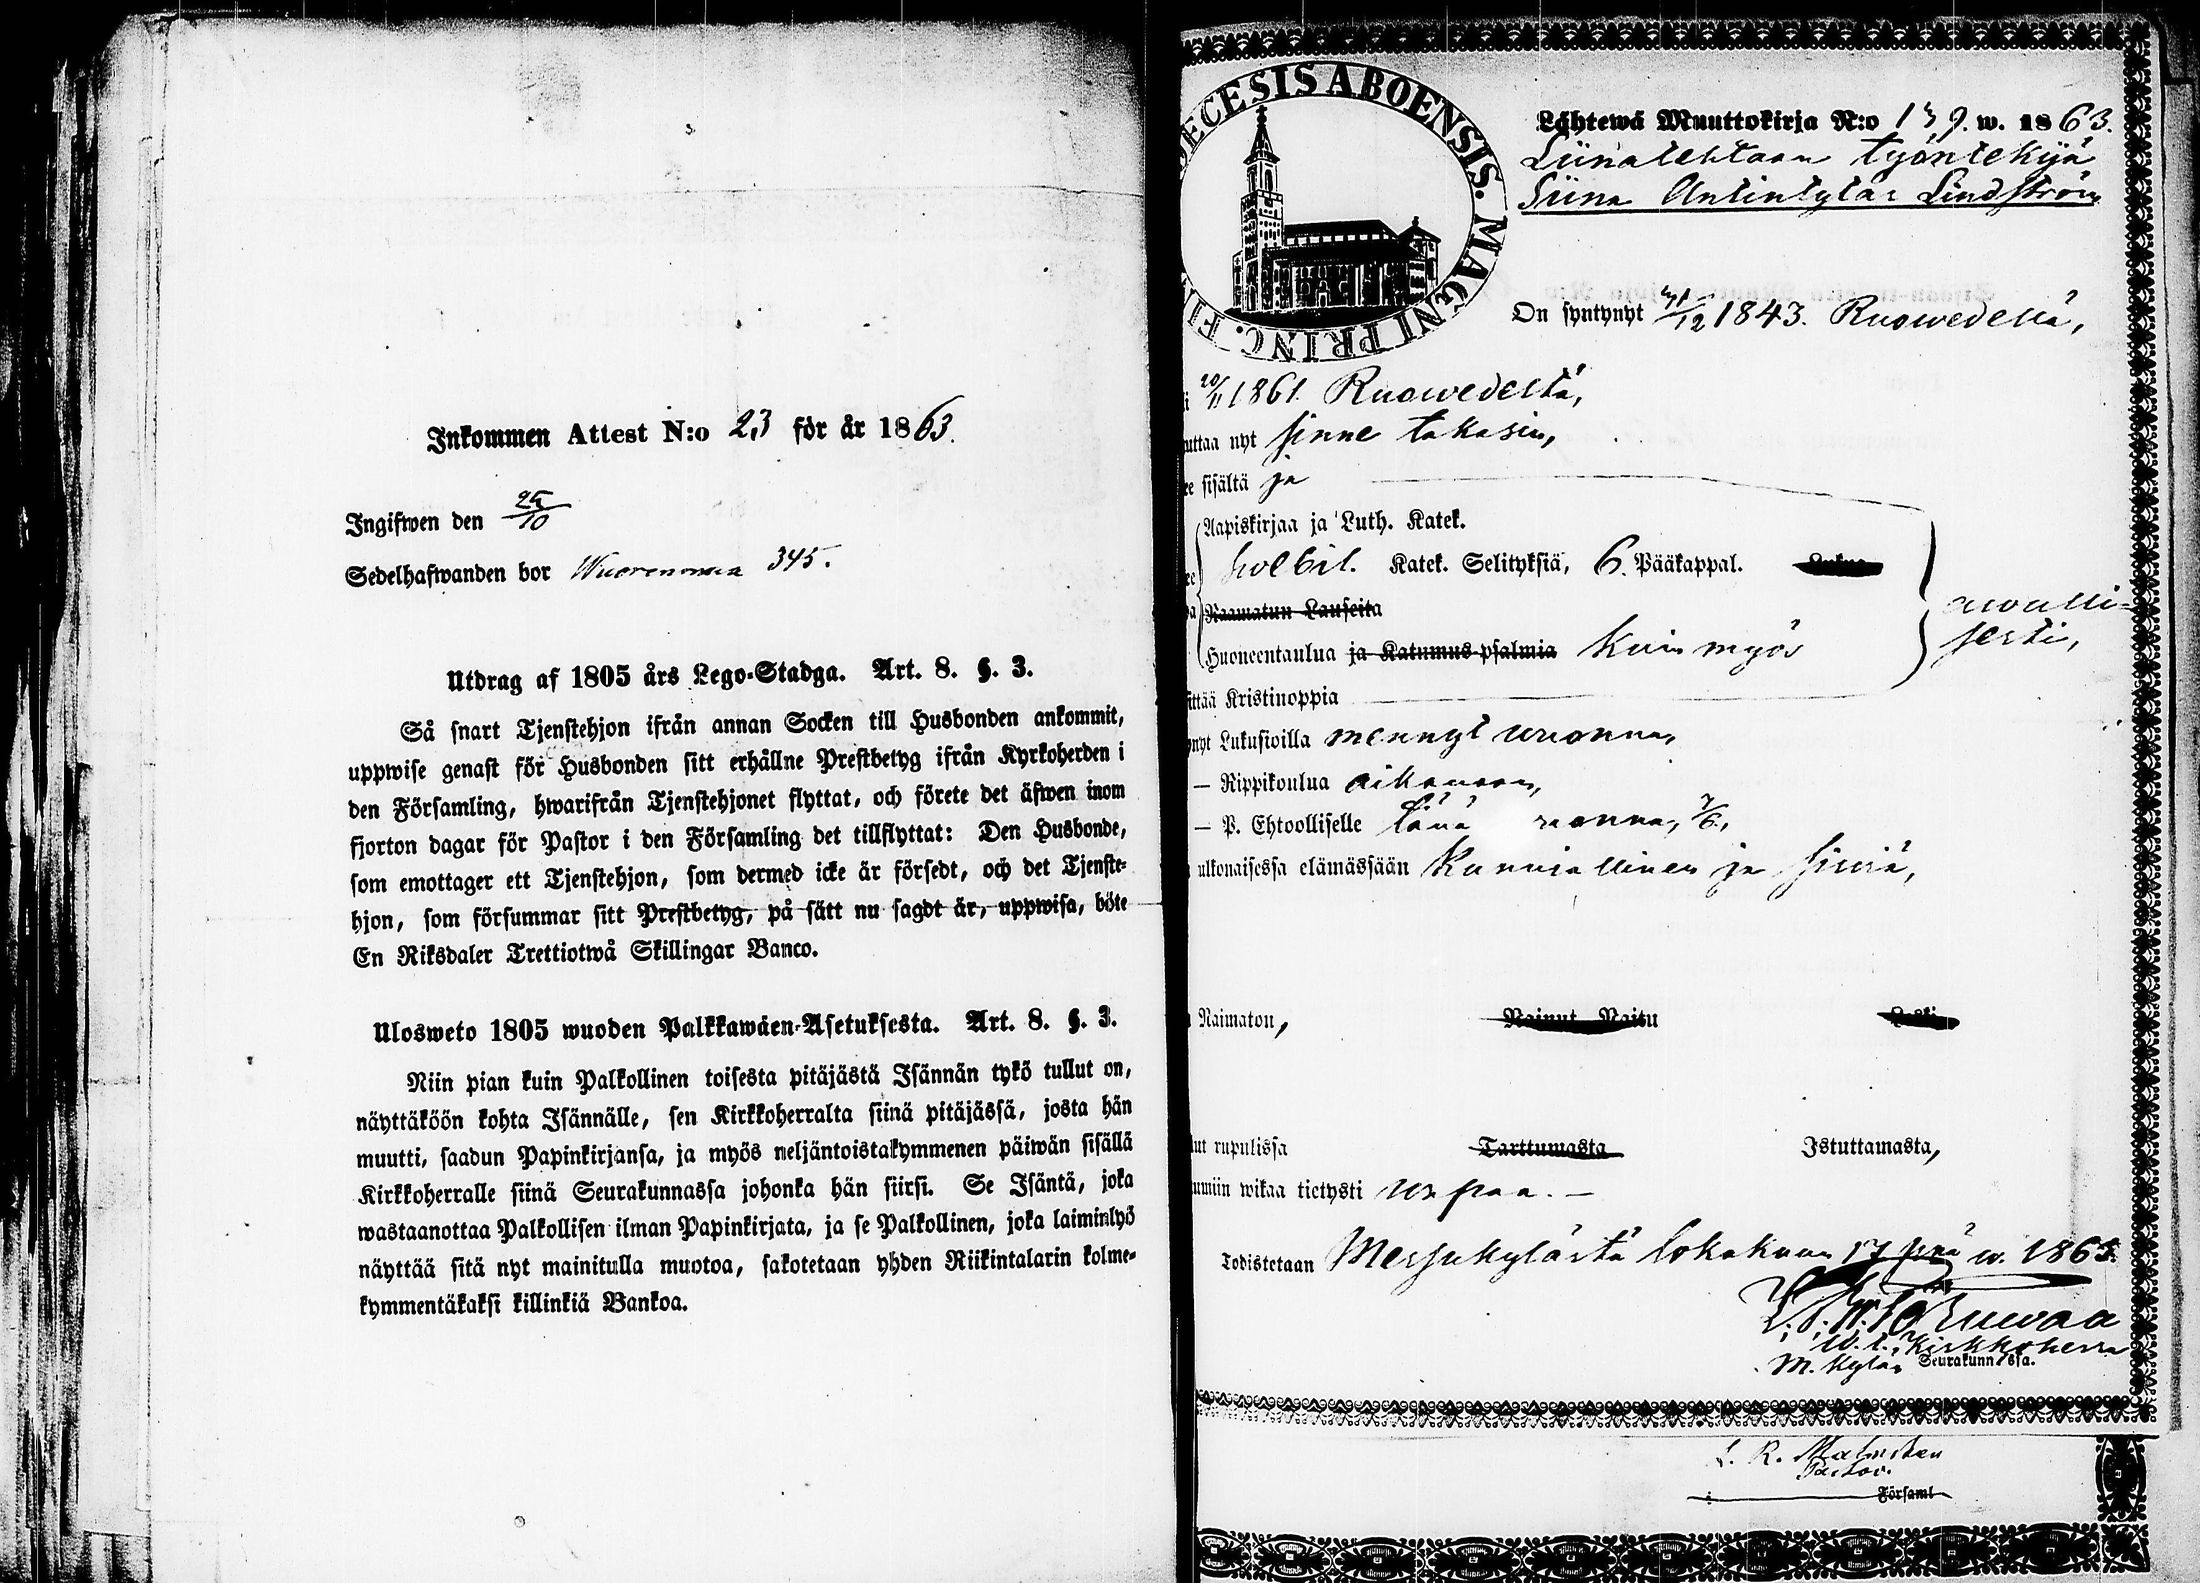 Inkommen Attest N:o 23 för år 1863.
Ingifwen den 25/10
Sedelhafwanden bor Wuorenmaa 345.
Utdrag af 1805 års Lego-Stadga. Art. 8. §. 3.
Så snart Tjenstehjon ifrån annan Socken till Husbonden ankommit,
uppwise genast för Husbonden sitt erhållne Prestbetyg ifrån Kyrkoherden i
den Församling, hwarifrån Tjenstehjonet flyttat, och förete det äfwen inom
fjorton dagar för Pastor i den Församling det tillflyttat: Den Husbonde,
som emottager ett Tjenstehjon, som dermed icke är försedt, och det Tjenste-
hjon, som försummar sitt Prestbetyg, på sätt nu sagdt är, uppwisa, böte
En Riksdaler Trettiotwå Skillingar Banco.
Ulosweto 1805 wuoden Palkkawäen-Asetuksesta. Art. 8. §. 3.
Niin pian kuin Palkollinen toisesta pitäjästä Isännän tykö tullut on,
näyttäköön kohta Isännälle, sen Kirkkoherralta siinä pitäjässä, josta hän
muutti, saadun Papinkirjansa, ja myös neljäntoistakymmenen päiwän sisällä
Kirkkoherralle siinä Seurakunnassa johonka hän siirsi. Se Isäntä, joka
wastaanottaa Palkollisen ilman Papinkirjata, ja se Palkollinen, joka laiminlyö
näyttää sitä nyt mainitulla muotoa, sakotetaan yhden Riikintalarin kolme-
kymmentäkaksi killinkiä Bankoa.
ECESIS ABOENSIS. MAGNI PRINC. FI
Lähtewä Muuttokirja N:o 139. w. 1863.
Liinatehtaan työntekijä
Siina Antintytär Lindström
On syntynyt /12 1843. Ruowedellä,
i 20/11 1861 Ruowedeltä,
uttaa nyt sinne takasin,
ee sisältä ja
Aapiskirjaa ja Luth. Katek.
Swebil. Katek. Selityksiä, 6. Pääkappal. Lukua
Raamatun Lauseita
Huoneentaulua ja Katumus-psalmia kuin myös
awulli-
sesti,
ittää Kristinoppia
ynyt Lukusioilla mennyt wuonna,
— Rippikoulua aikanaan,
— P. Ehtoolliselle tänä wuonna, 7/6,
ulkonaisessa elämässään Kunniallinen ja siwiä,
Naimaton, Nainut Naitu Leski
ut rupulissa Tarttumasta Istuttamasta,
umiin wikaa tietysti wapaa. —
Todistetaan Messukylästä lokakuun 17 pnä w. 1863.
W. t. Kirkkoherra
M. kylän Seurakunnassa.
L. R. Malmsten
Pastor.
i Församl